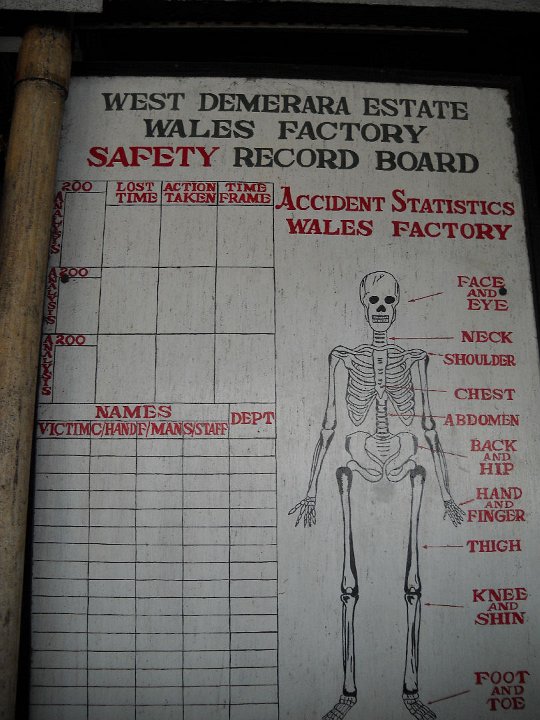 WEST DEMERARA ESTATE
WALES FACTORY
SAFETY RECORD BOARD
200
ANALYSIS
LOST TIME
ACTION TAKEN
TIME FRAME
200
ANALYSIS
200
ANALYSIS
NAMES
VICTIM C/HAND F/MAN S/STAFF
DEPT
ACCIDENT STATISTICS
WALES FACTORY
FACE
AND
EYE
NECK
SHOULDER
CHEST
ABDOMEN
BACK
AND
HIP
HAND
AND
FINGER
THIGH
KNEE
AND
SHIN
FOOT
AND
TOE